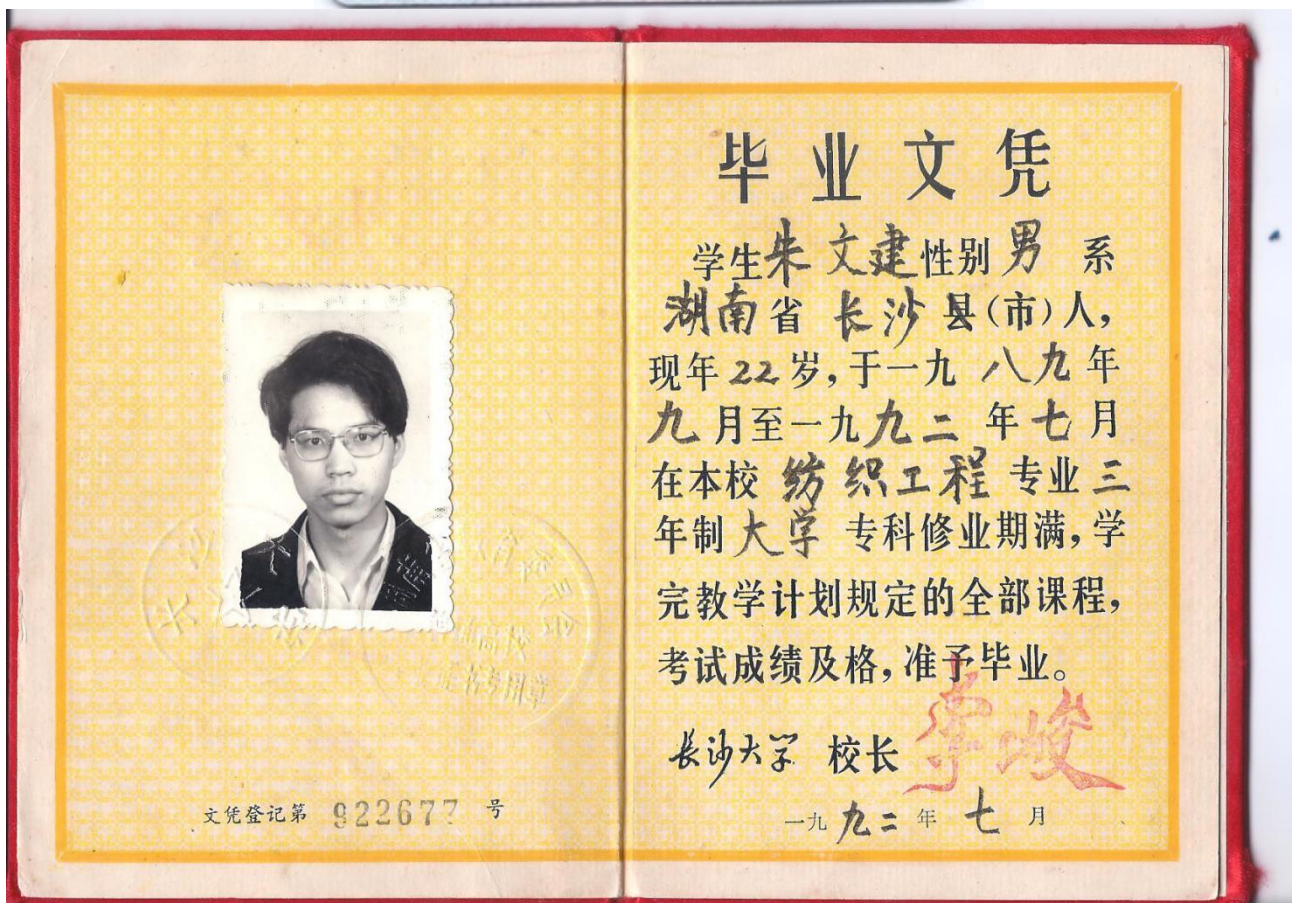 文凭登记第 922677 号
毕业文凭
学生朱文建性别男 系
湖南省 长沙县(市)人,
现年22岁,于一九八九年
九月至一九九二年七月
在本校 纺织工程 专业三
年制大学 专科修业期满,学
完教学计划规定的全部课程,
考试成绩及格,准予毕业。
长沙大学 校长
一九九二年七月